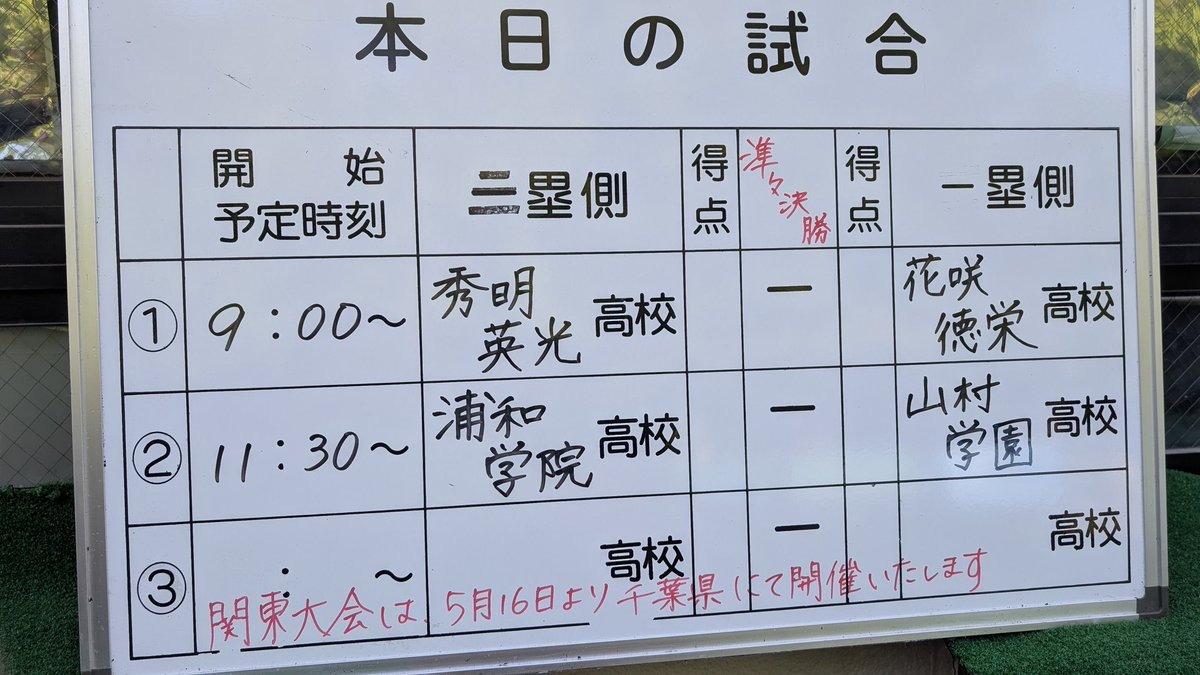 本日の試合
開始予定時刻 三塁側 得点 準々決勝 得点 一塁側
① 9:00〜 秀明英光高校 ー 花咲徳栄高校
② 11:30〜 浦和学院高校 ー 山村学園高校
③ :〜 高校 ー 高校
関東大会は、5月16日より千葉県にて開催いたします